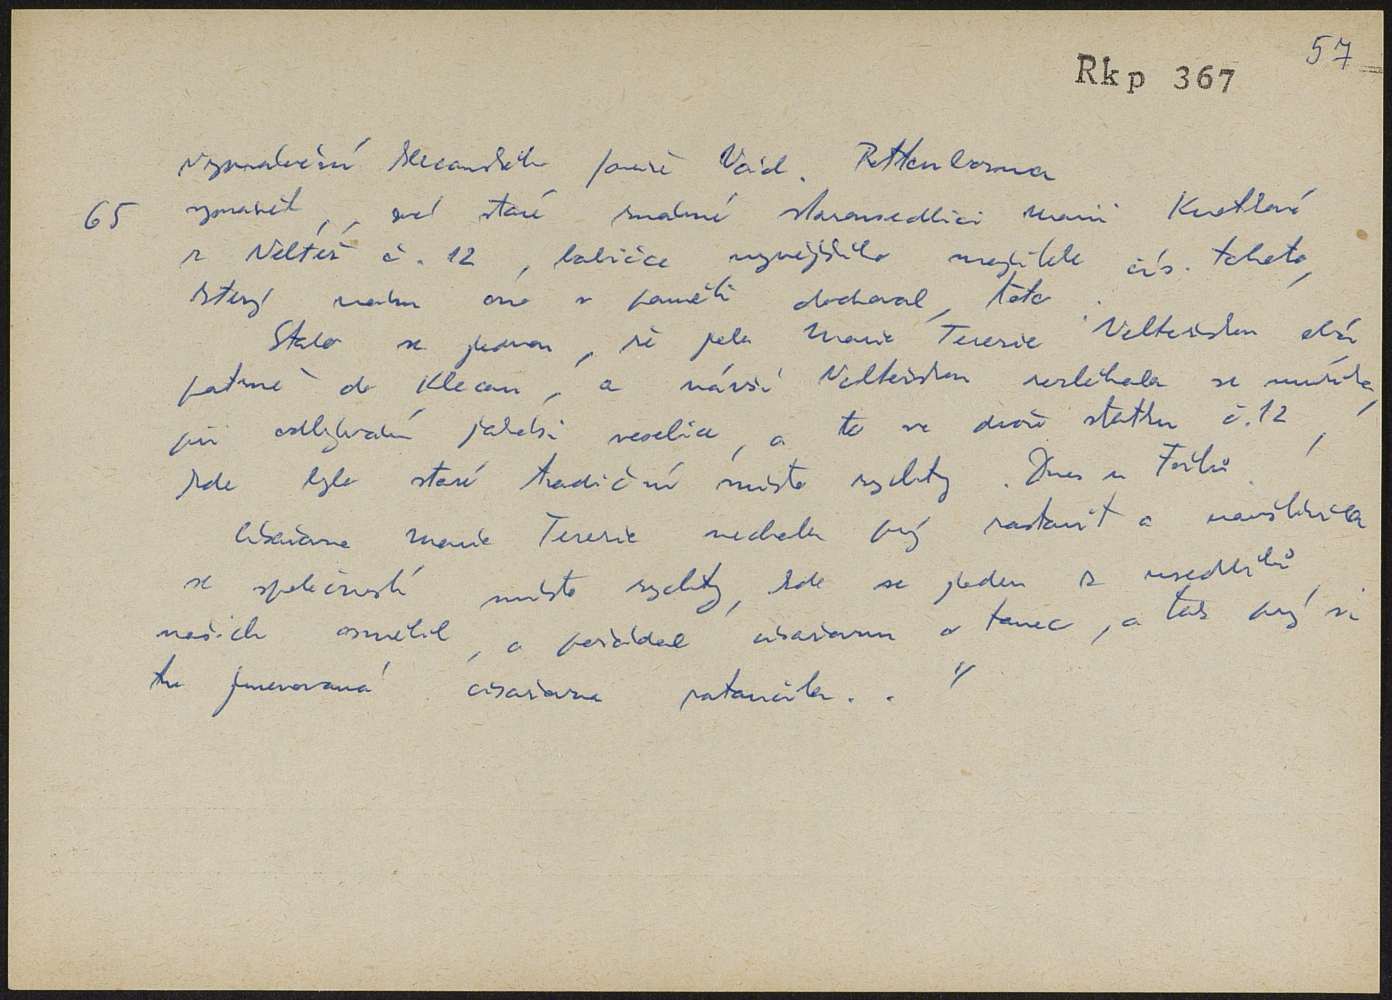 57
Rkp 367
vypravování klecanského faráře Václ. Rottenborna
65 vypravět, své staré známé starousedlici Marii Knotkové
z Veltěž č. 12, babičce nynějšího majitele čís. tohoto,
který nám ono v paměti dochoval, toto.
Stalo se jednou, že jela Marie Terezie Veltěžskou
patrně do Klecan, a návsí Veltěžskou rozléhala se muzika,
při odbývání jakési veselice, a to ve dvoře statku č. 12,
kde bylo staré tradiční místo rychty. Dnes u
Císařovna Marie Terezie nechala prý zastavit a navštívila
se společností místo rychty, kde se jeden z usedlíků
našich osmělil, a požádal císařovnu o tanec, a tak prý si
tu jmenovaná císařovna zatančila. . "